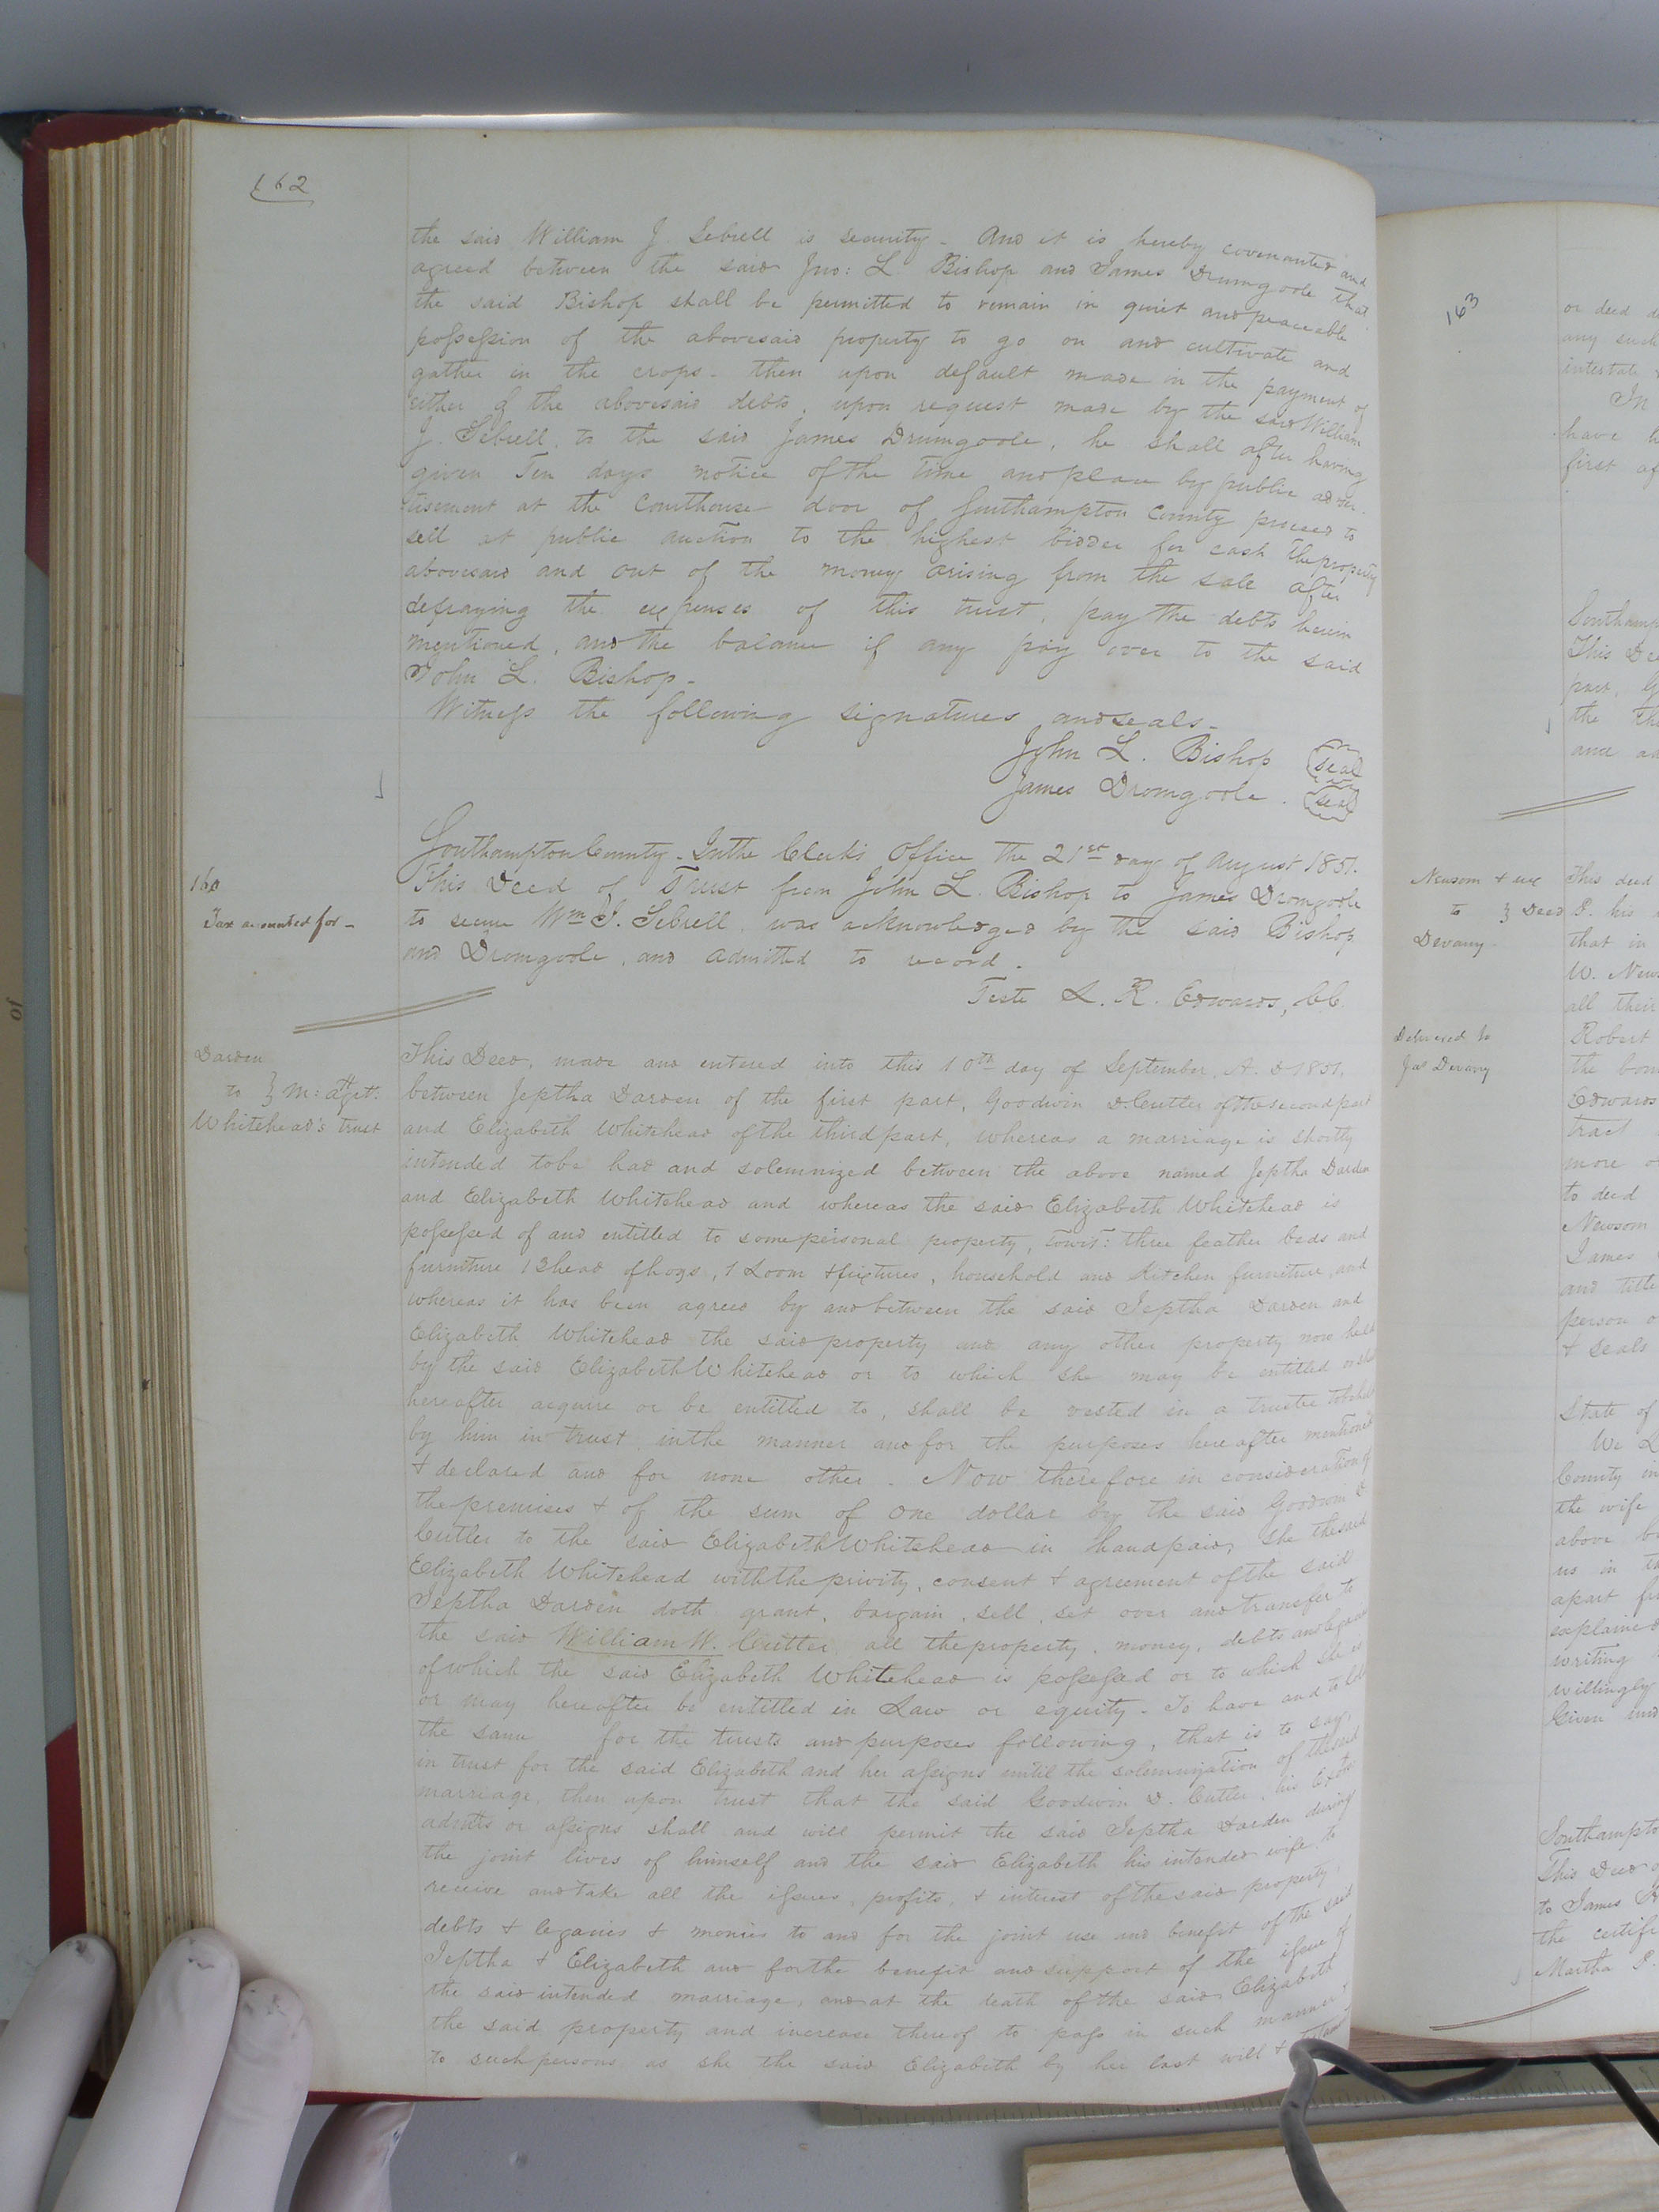 162
the said William J. Sebrell is security - And it is hereby covenanted and
agreed between the said Jno: L. Bishop and James Drumgoole that
the said Bishop shall be permitted to remain in quiet and peaceable
possession of the abovesaid property to go on and cultivate and
gather in the crops - then upon default made in the payment of
either of the abovesaid debts, upon request made by the said William
J. Sebrell, to the said James Drumgoole, he shall after having
given Ten days notice of the time and place by public adver-
tisement at the Courthouse door of Southampton County proceed to
sell at public auction to the highest bidder for cash the property
abovesaid and out of the money arising from the sale after
defraying the expenses of this trust, pay the debts herein
mentioned, and the balance if any pay over to the said
John L. Bishop -
Witness the following signatures and seals -
John L. Bishop seal
James Dromgoole. seal
Southampton County - In the Clerk's Office the 21st day of August 1851.
This Deed of Trust from John L. Bishop to James Dromgoole
to secure Wm J. Sebrell, was acknowledged by the said Bishop
and Dromgoole, and admitted to record.
Teste L. R. Edwards, C.C.
160
Tax accounted for -
Darden
to } M: agt:
Whitehead's trust
This Deed, made and entered into this 10th day of September, A. D 1851.
between Jeptha Darden of the first part, Goodwin D. Cutler of the second part
and Elizabeth Whitehead of the third part, whereas a marriage is shortly
intended to be had and solemnized between the above named Jeptha Darden
and Elizabeth Whitehead and whereas the said Elizabeth Whitehead is
possessed of and entitled to some personal property, towit: three feather beds and
furniture 13 head of hogs, 1 Loom & fixtures, household and kitchen furniture, and
whereas it has been agreed by and between the said Jeptha Darden and
Elizabeth Whitehead the said property and any other property now held
by the said Elizabeth Whitehead or to which she may be entitled or shall
hereafter acquire or be entitled to, shall be vested in a trustee to be held
by him in trust in the manner and for the purposes hereafter mentioned
& declared and for none other - Now therefore in consideration of
the premises & of the sum of One dollar by the said Goodwin D
Cutler to the said Elizabeth Whitehead in hand paid, she the said
Elizabeth Whitehead with the privity, consent & agreement of the said
Jeptha Darden doth grant, bargain, sell, set over and transfer to
the said William W. Cutler all the property, money, debts and legacies
of which the said Elizabeth Whitehead is possessed or to which she is
or may hereafter be entitled in Law or equity - To have and to hold
the same for the trusts and purposes following, that is to say,
in trust for the said Elizabeth and her assigns until the solemnization of the said
marriage, then upon trust that the said Goodwin D. Cutler, his Exors
admrs or assigns shall and will permit the said Jeptha Darden during
the joint lives of himself and the said Elizabeth his intended wife to
receive and take all the issues, profits, & interest of the said property,
debts & legacies & monies to and for the joint use and benefit of the said
Jeptha & Elizabeth and for the benefit and support of the issue of
the said intended marriage, and at the death of the said Elizabeth
the said property and increase thereof to pass in such manner &
to such persons as she the said Elizabeth by her last will &
163
or deed
any such
intestate
In
have
first
Southamp
This De
part,
the th
ance
Newsom & ux
to } Deed
Devany
Delivered to
Jas Devany
This deed
D. his
that in
W. News
all their
Robert
the bou
Edwards
tract
more
to deed
Newsom
James
and title
person
& seals
State of
We
County in
the wife
above
us in
apart
explained
writing
willingly
Given und
Southampto
This Deed
to James
the certif
Martha P.